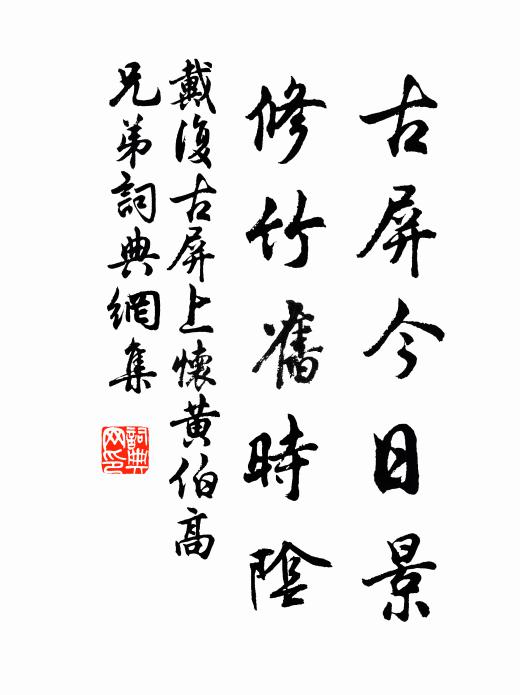 古屏今日景
修竹舊時陰
戴復古屏上懷黃伯高
兄弟詞典網集
詞典
网印